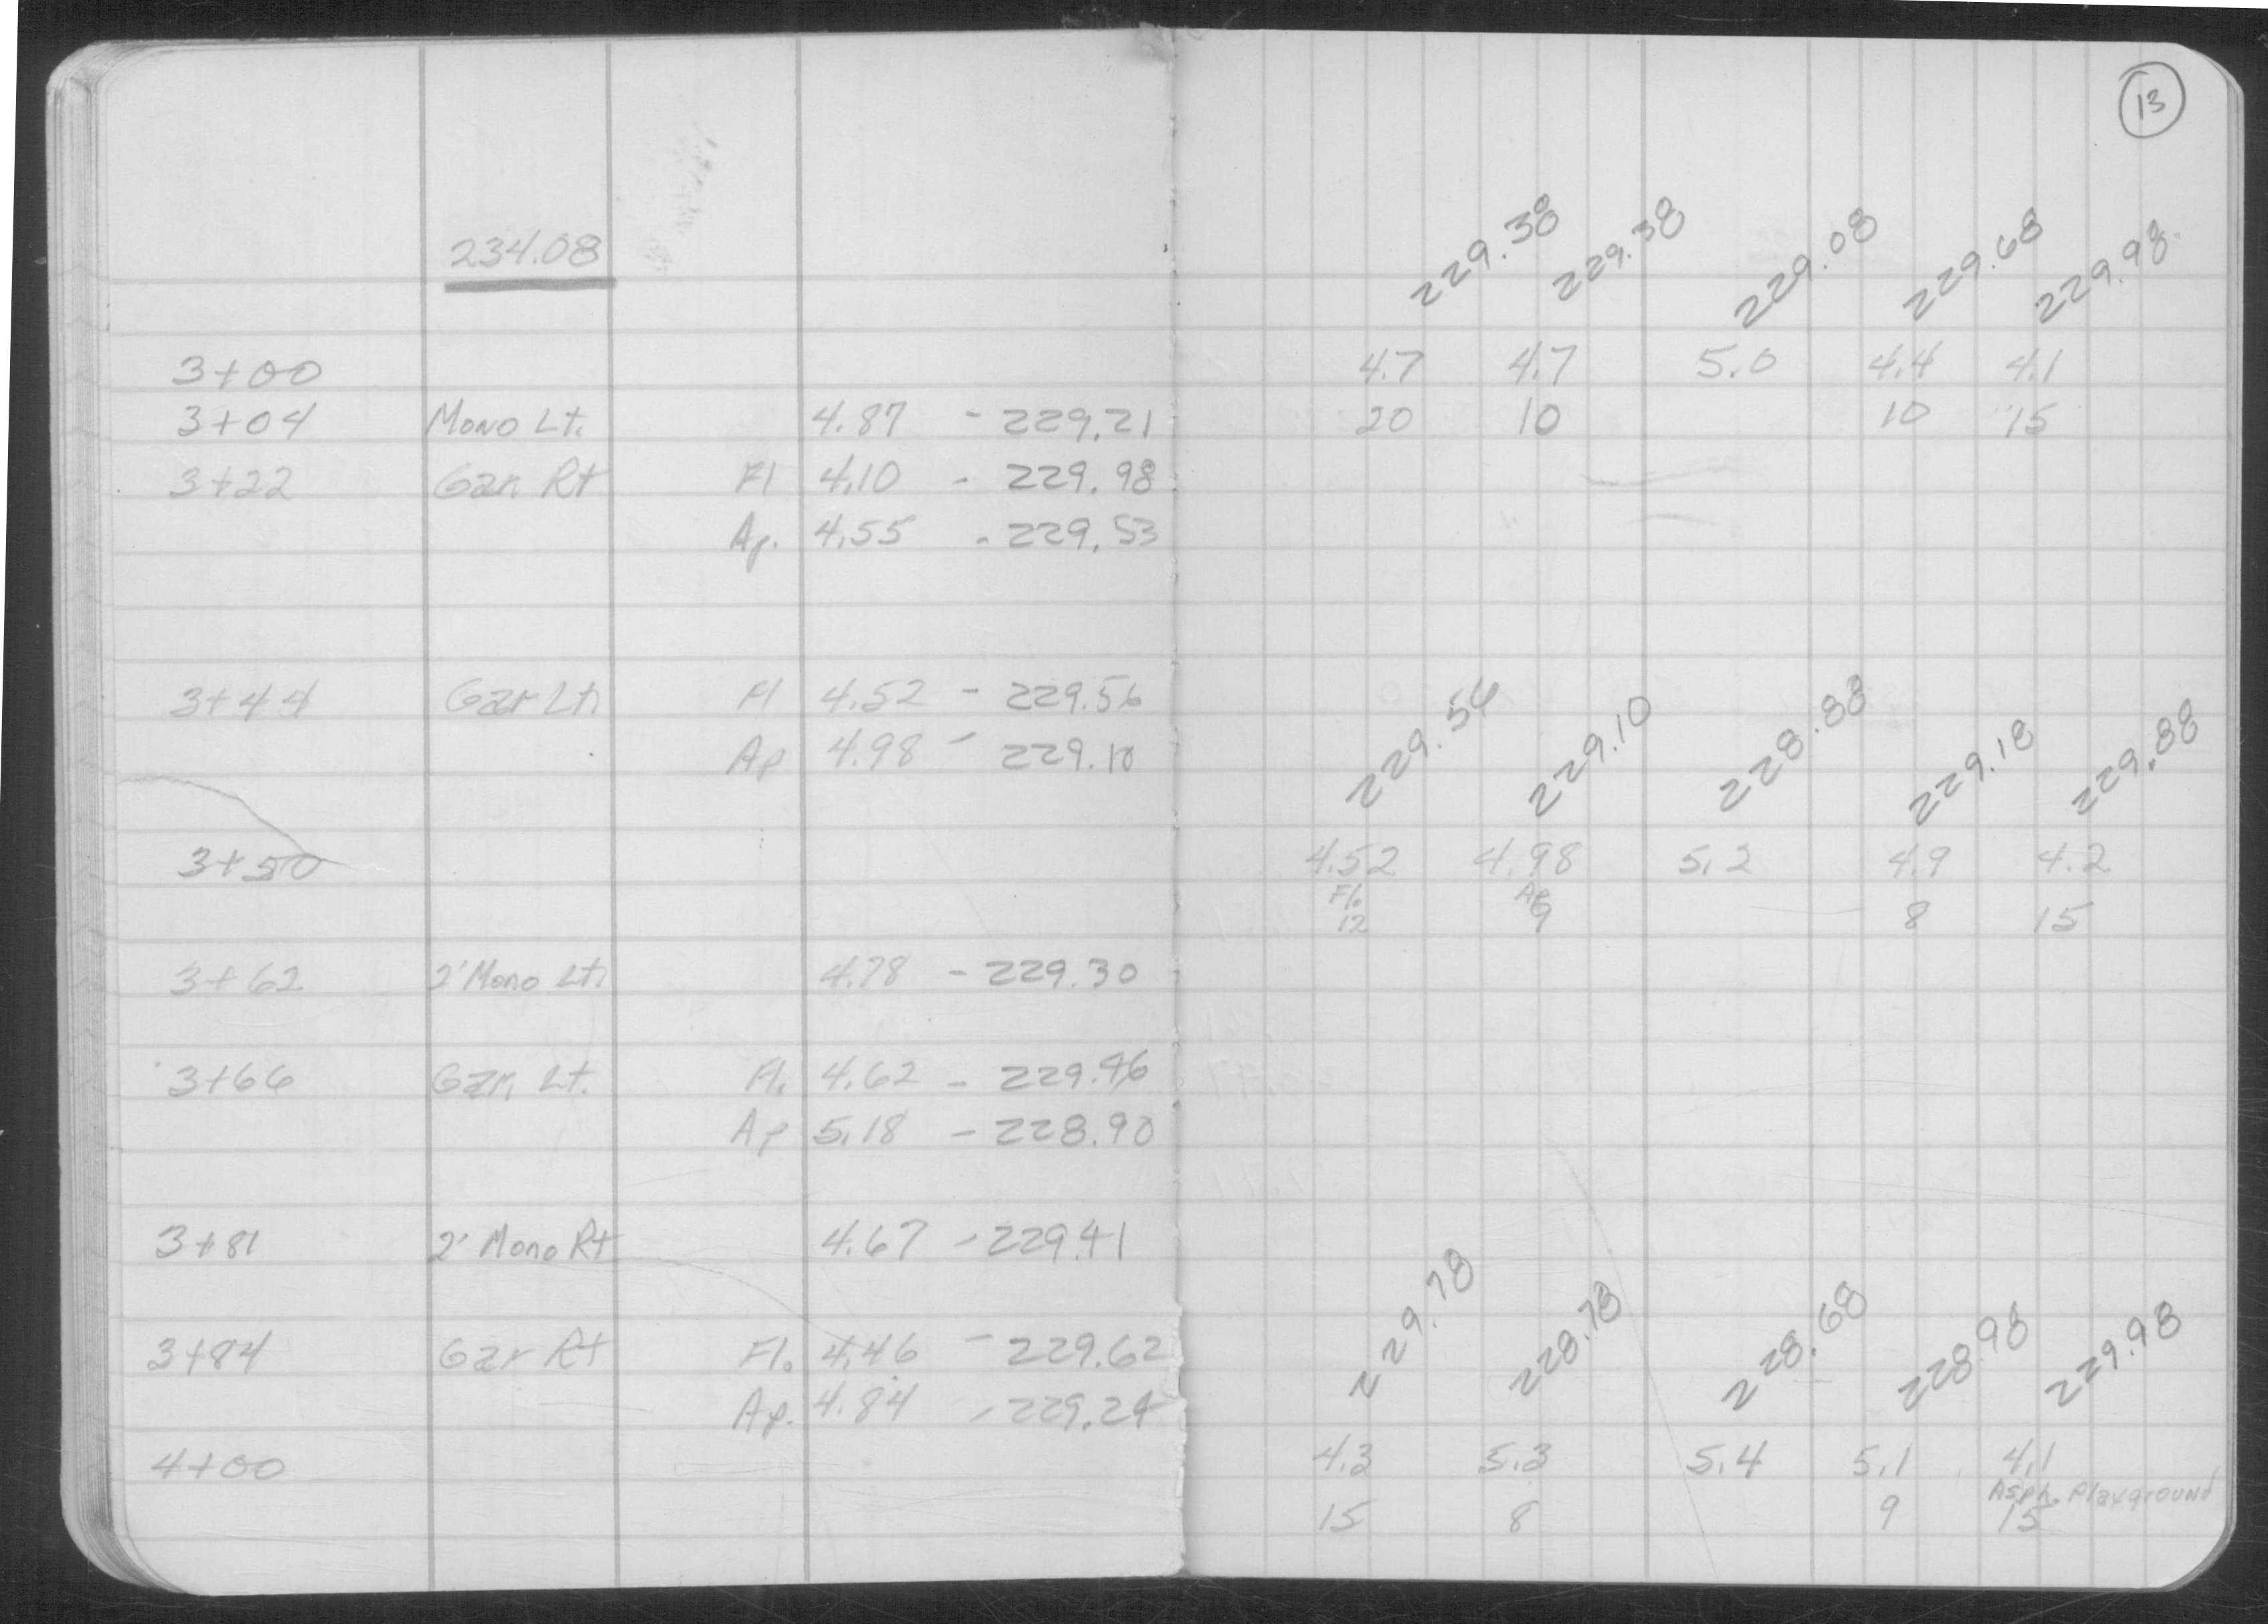 13
234.08
229.38 229.38 229.08 229.68 229.98
3+00 4.7 4.7 5.0 4.4 4.1
3+04 Mono Lt. 4.87 - 229.21 20 10 10 15
3+22 Gar. Rt Fl 4.10 - 229.98
Ap. 4.55 - 229.53
3+44 Gar Lt. Fl 4.52 - 229.56 229.56 229.10 228.88 229.18 229.88
Ap 4.98 - 229.10
3+50 4.52 4.98 5.2 4.9 4.2
Fl. Ap
12 9 8 15
3+62 2' Mono Lt. 4.78 - 229.30
3+66 Gar. Lt. Fl. 4.62 - 229.46
Ap 5.18 - 228.90
3+81 2' Mono Rt 4.67 - 229.41
229.78 228.78 228.68 228.98 229.98
3+84 Gar Rt Fl. 4.46 - 229.62
Ap. 4.84 - 229.24
4+00 4.3 5.3 5.4 5.1 4.1
Asph. Playground
15 8 9 15